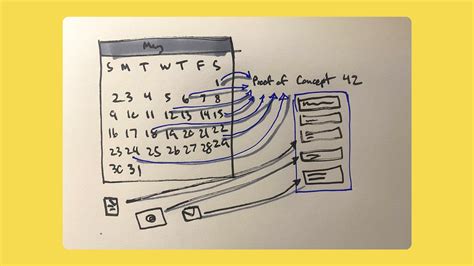 May
S M T W T F S
1
Proof of Concept 42
2 3 4 5 6 7 8
9 10 11 12 13 14 15
16 17 18 19 20 21 22
23 24 25 26 27 28 29
30 31